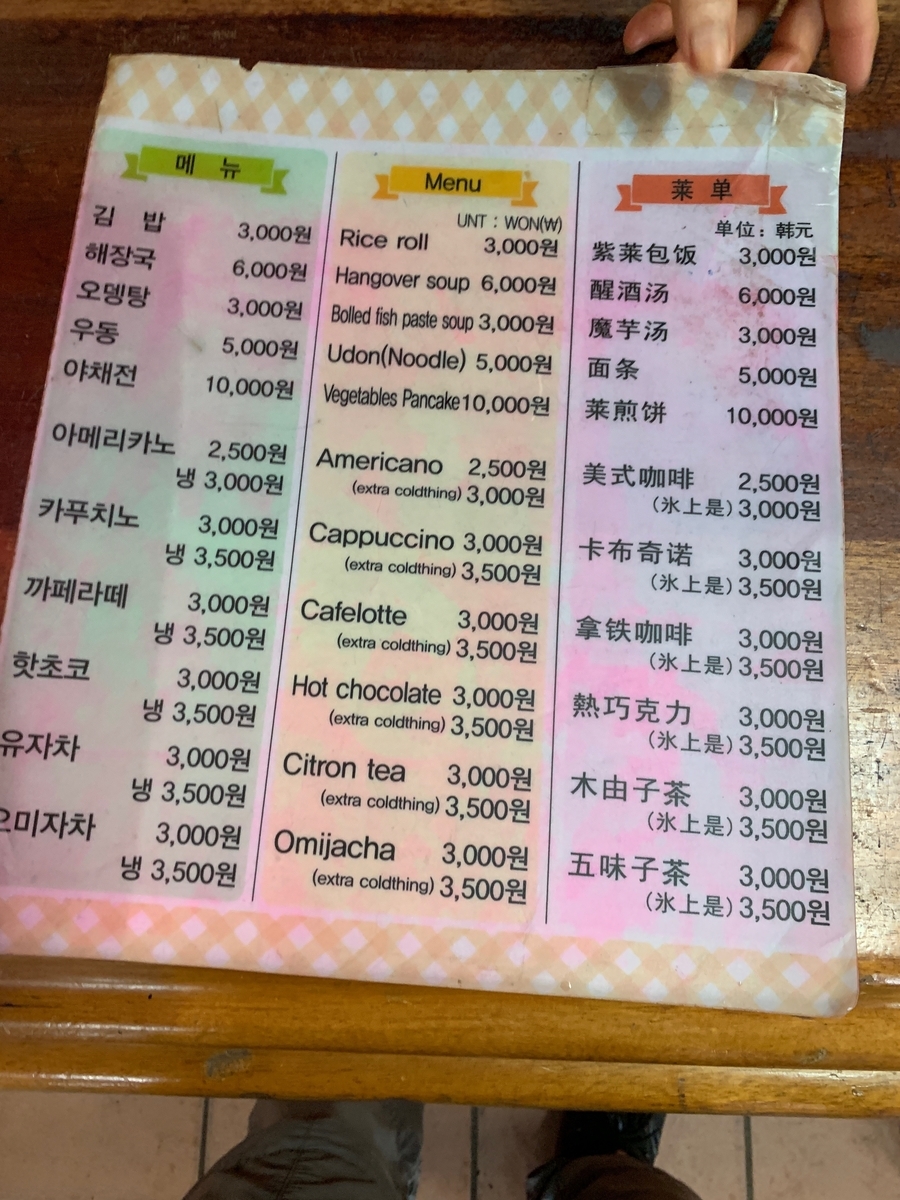 메 뉴
김 밥 3,000원
해장국 6,000원
오뎅탕 3,000원
우동 5,000원
야채전 10,000원
아메리카노 2,500원
냉 3,000원
카푸치노 3,000원
냉 3,500원
까페라떼 3,000원
냉 3,500원
핫초코 3,000원
냉 3,500원
유자차 3,000원
냉 3,500원
오미자차 3,000원
냉 3,500원
Menu
UNT : WON(₩)
Rice roll 3,000원
Hangover soup 6,000원
Bolled fish paste soup 3,000원
Udon(Noodle) 5,000원
Vegetables Pancake 10,000원
Americano 2,500원
(extra coldthing) 3,000원
Cappuccino 3,000원
(extra coldthing) 3,500원
Cafelotte 3,000원
(extra coldthing) 3,500원
Hot chocolate 3,000원
(extra coldthing) 3,500원
Citron tea 3,000원
(extra coldthing) 3,500원
Omijacha 3,000원
(extra coldthing) 3,500원
莱 单
单位：韩元
紫莱包饭 3,000원
醒酒汤 6,000원
魔芋汤 3,000원
面条 5,000원
莱煎饼 10,000원
美式咖啡 2,500원
(氷上是) 3,000원
卡布奇诺 3,000원
(氷上是) 3,500원
拿铁咖啡 3,000원
(氷上是) 3,500원
熱巧克力 3,000원
(氷上是) 3,500원
木由子茶 3,000원
(氷上是) 3,500원
五味子茶 3,000원
(氷上是) 3,500원